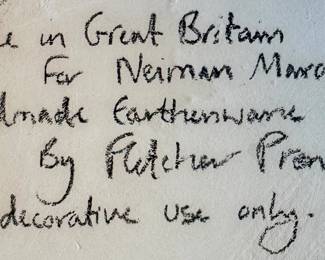 e in Great Britain
For Neiman Marc
dmade Earthenware
By Fletcher Pren
decorative use only.